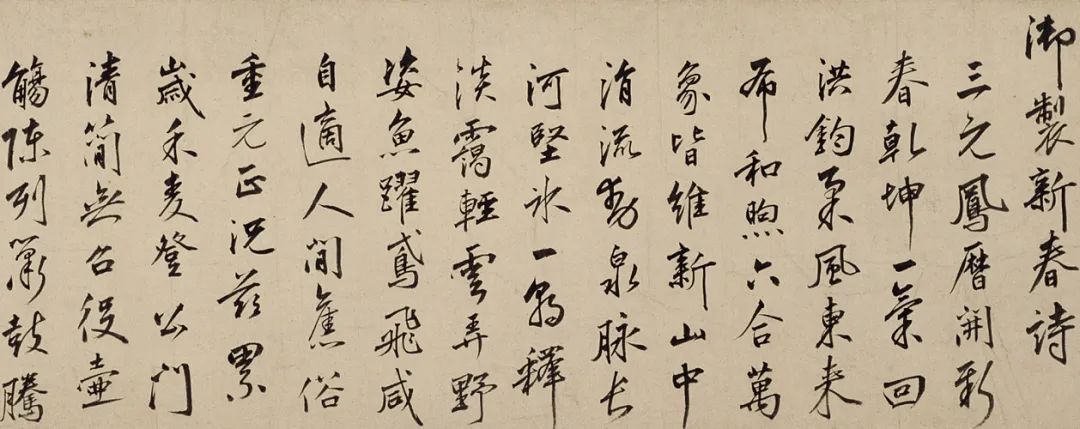 御製新春詩
三元鳳曆開新
春乾坤一氣回
洪鈞柔風東來
布和煦六合萬
象皆維新山中
涓流動泉脉長
河堅冰一朝釋
淡靄輕雲弄野
姿魚躍鳶飛咸
自適人間舊俗
重元正況茲累
歲禾麥登公門
清簡無召役壺
觴陳列簫鼓騰